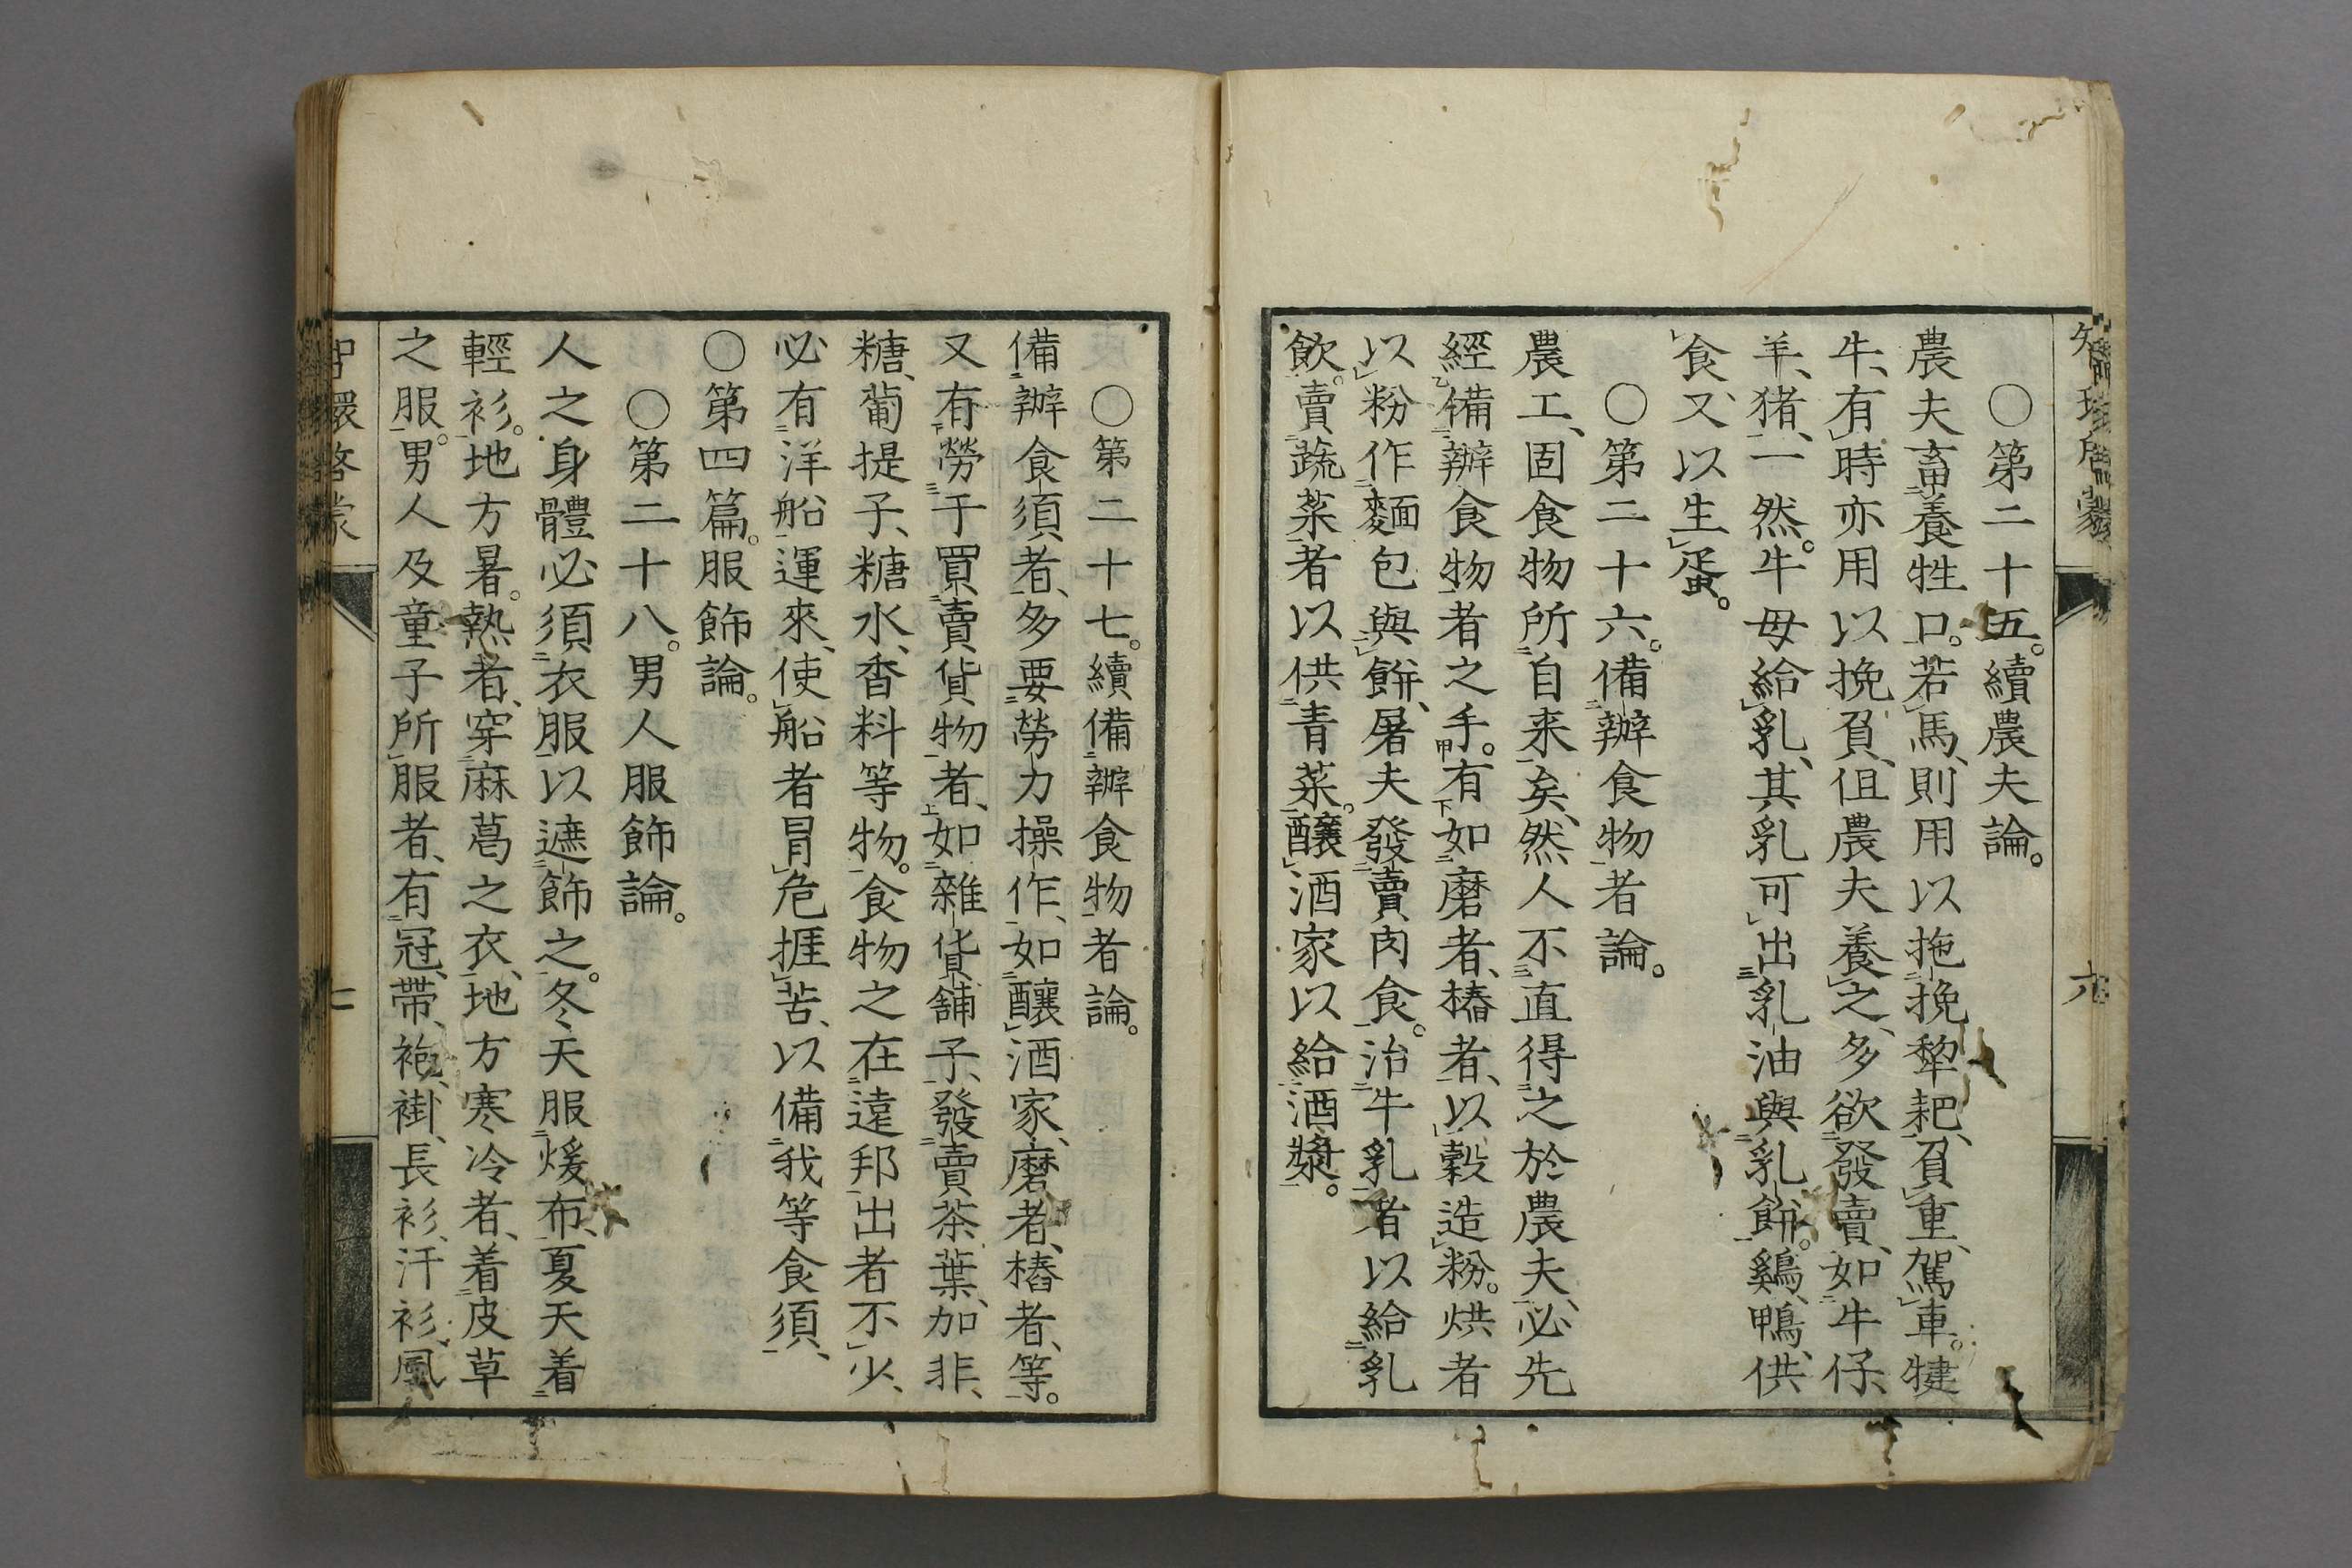 智環啓蒙
六
○第二十五。續農夫論。
農夫畜養牲口。若馬、則用以拖挽犂耙、負重、駕車。犍
牛、有時亦用以挽負、但農夫養之、多欲發賣、如牛仔、
羊、猪、一然。牛母給乳、其乳可出乳油與乳餅。鷄、鴨、供
食、又以生蛋。
○第二十六。備辦食物者論。
農工、固食物所自来矣、然人不直得之於農夫、必先
經備辦食物者之手。有如磨者、樁者、以穀造粉。烘者
以粉作麵包與餅、屠夫發賣肉食。治牛乳者以給乳
飲。賣蔬菜者以供青菜。釀酒家以給酒漿。
○第二十七。續備辦食物者論。
備辦食須者、多要勞力操作、如釀酒家、磨者、樁者、等。
又有勞于買賣貨物者、如雜貨舖子、發賣茶葉、加非、
糖、葡提子、糖水、香料等物。食物之在遠邦出者不少、
必有洋船運來、使船者冒危捱苦、以備我等食須、
○第四篇。服飾論。
○第二十八。男人服飾論。
人之身體必須衣服以遮飾之。冬天服煖布、夏天着
輕衫。地方暑。熱者、穿麻葛之衣、地方寒冷者、着皮草
之服。男人及童子所服者、有冠、帶、袍、褂、長衫、汗衫、風
智環啓蒙
七